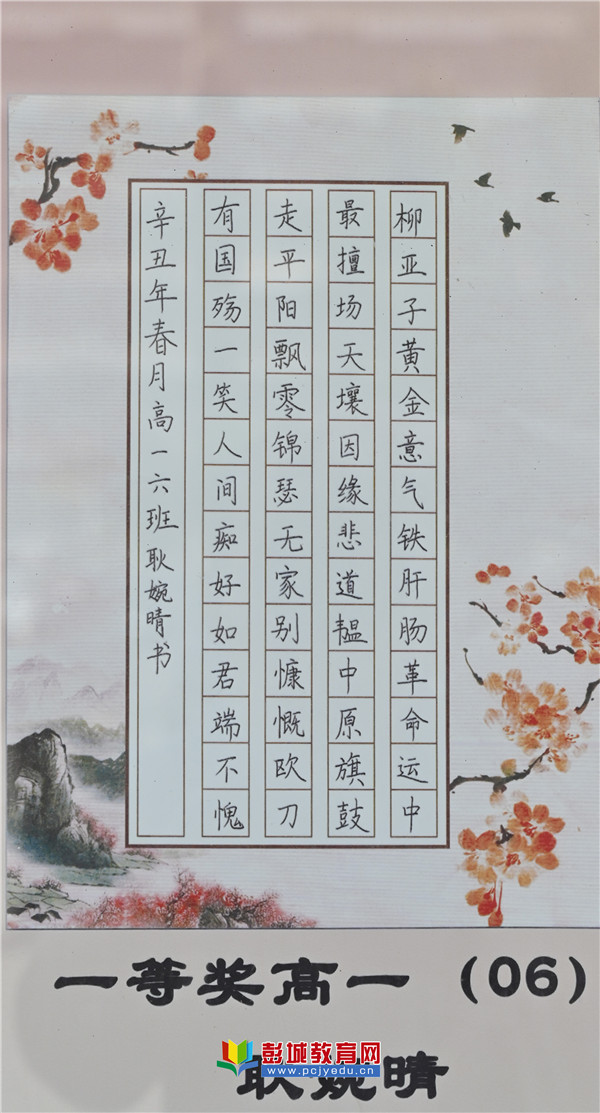 柳亚子黄金意气铁肝肠革命运中
最擅场天壤因缘悲道韫中原旗鼓
走平阳飘零锦瑟无家别慷慨欧刀
有国殇一笑人间痴好如君端不愧
辛丑年春月高一六班耿婉晴书
一等奖高一（06）
彭城教育网
www.pcjyedu.cn
耿婉晴